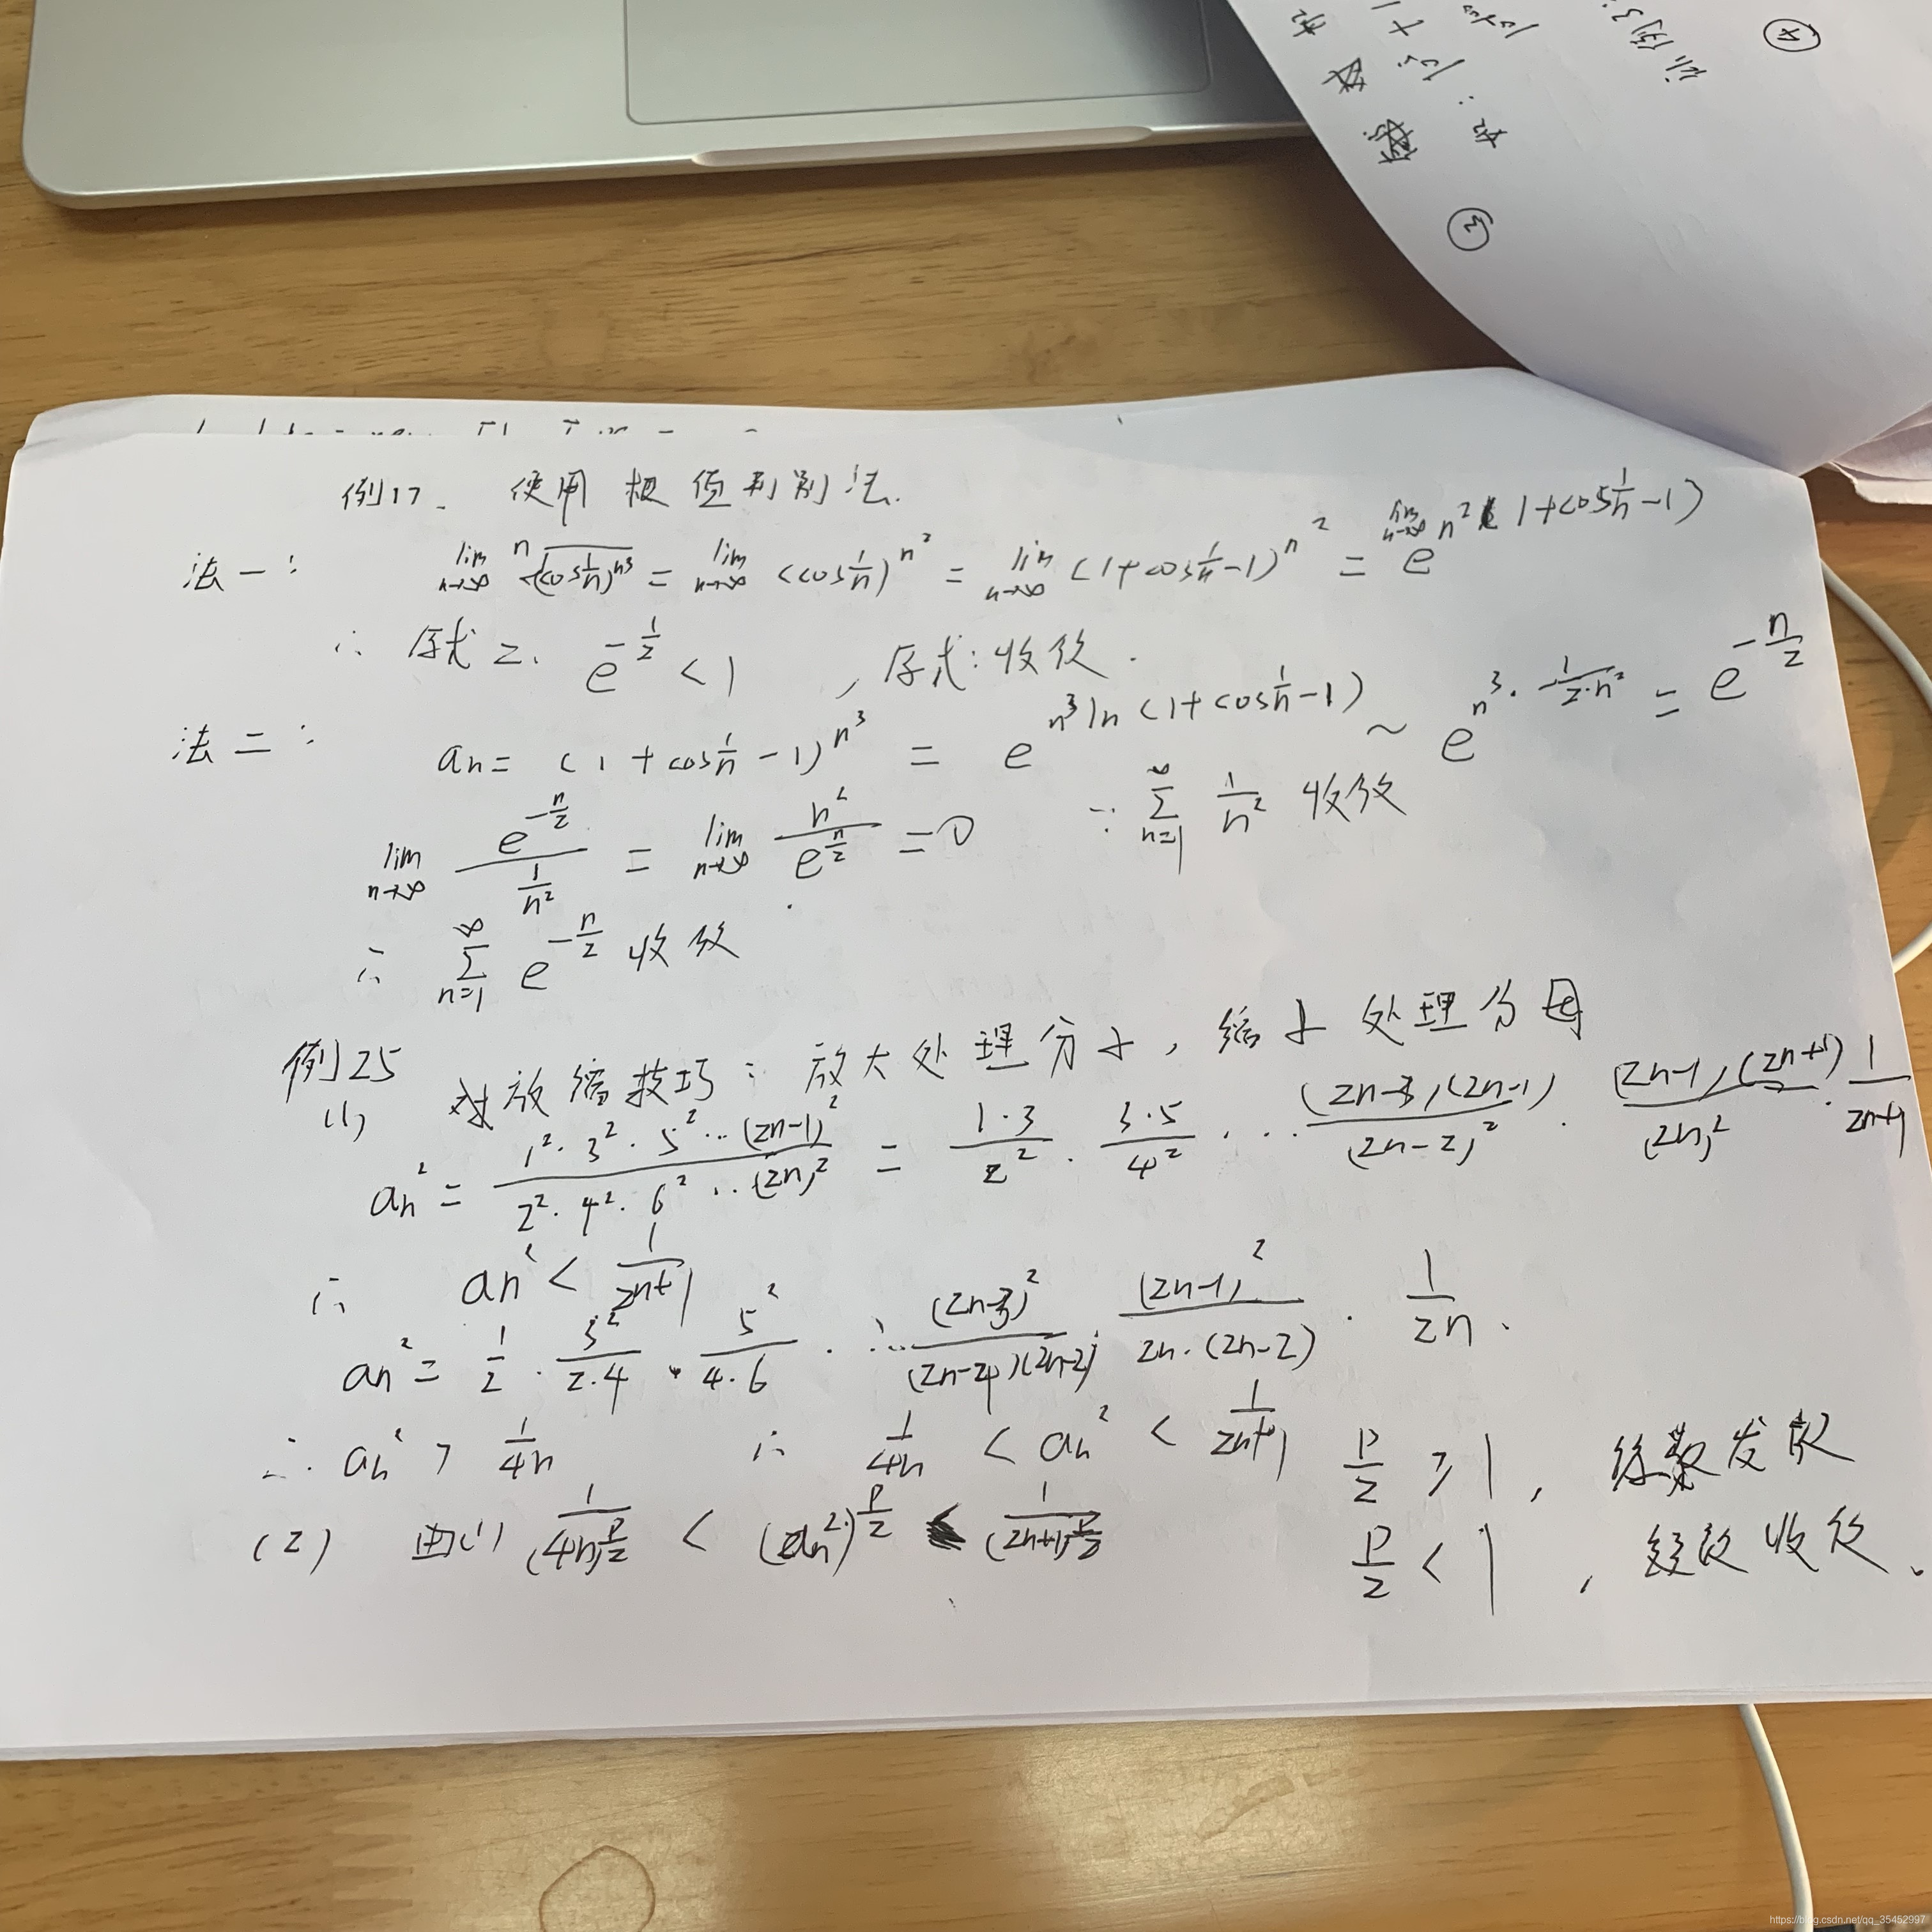 ④
③
例17. 使用根值判别法.
法一: lim n→∞ ⁿ√(cos 1/n)^n³ = lim n→∞ (cos 1/n)^n² = lim n→∞ (1+cos 1/n -1)^n² = e^lim n→∞ n²(1+cos 1/n -1)
∴ 原式 = e^-1/2 < 1 , 原式:收敛.
法二: an = (1+cos 1/n -1)^n³ = e^n³ln(1+cos 1/n -1) ~ e^n³·-1/2·n² = e^-n/2
lim n→∞ e^-n/2 / 1/n² = lim n→∞ n²/e^n/2 = 0 ∵ ∑ n=1 ∞ 1/n² 收敛
∴ ∑ n=1 ∞ e^-n/2 收敛
例25 对放缩技巧: 放大处理分子, 缩小处理分母
(1)
an² = 1²·3²·5²··(2n-1)² / 2²·4²·6²··(2n)² = 1·3/2² · 3·5/4² ··· (2n-3)(2n-1)/(2n-2)² · (2n-1)(2n+1)/(2n)² · 1/2n+1
∴ an² < 1/2n+1
an² = 1/2 · 3²/2·4 · 5²/4·6 ··· (2n-3)²/(2n-4)(2n-2) · (2n-1)²/2n·(2n-2) · 1/2n.
∴ an² > 1/4n ∴ 1/4n < an² < 1/2n+1 p/2 ≥ 1, 级数发散
(2) 由(1) 1/(4n)^p/2 < (an²)^p/2 < 1/(2n+1)^p/2 p/2 < 1, 级数收敛.
https://blog.csdn.net/qq_35452997